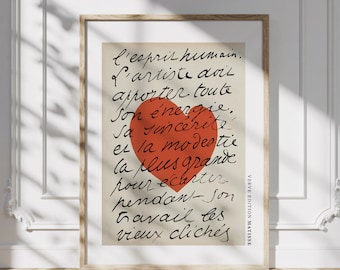 l'esprit humain.
L'artiste doit
apporter toute
son énergie,
sa sincérité
et la modestie
la plus grande
pour écarter
pendant son
travail les
vieux clichés
VERVE EDITION MATISSE